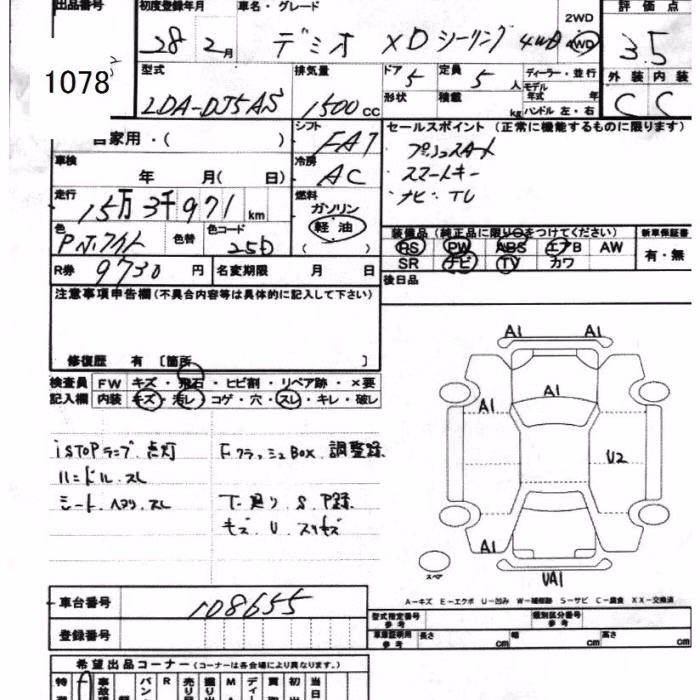 出品番号 初度登録年月 車名・グレード 2WD 評価点
1078 28年 2月 デミオ XDツーリング 4WD 4WD 3.5
型式 排気量 ドア 5 定員 5人 ディーラー・並行 外装 内装
LDA-DJ5AS 1500cc 形状 積載 kg モデル年式 年 ハンドル 左・右 C C
自家用・( ) シフト FAT セールスポイント (正常に機能するものに限ります)
車検 年 月( 日) 冷房 AC プッシュスタート
スマートキー
ナビ・TV
走行 15万3千971km 燃料 ガソリン
軽油
( )
色 Pホワイト 色替 色コード 25D
装備品 (純正品に限り○をつけてください) 新車保証書
PS PW ABS エアB AW 有・無
SR ナビ TV カワ
R券 9730円 名変期限 月 日 後日品
注意事項申告欄(不具合内容等は具体的に記入して下さい)
修復歴 有 [箇所 ]
検査員 FW キズ・飛石・ヒビ割・リペア跡・×要
記入欄 内装 キズ・汚レ・コゲ・穴・スレ・キレ・破レ
A1 A1
A1
A1
U2
A1
UA1
スペア
iSTOPランプ.点灯 Fクラッシュ BOX.調整録
ハンドル.スレ
シート.ヘタリ.スレ
キズ.U.スリキズ
A-キズ E-エクボ U-凹み W-補修跡 S-サビ C-腐食 XX-交換済
車台番号 108655
型式指定番号 参考 類別区分番号 参考
登録番号 車庫証明用 参考 長さ cm 幅 cm 高さ cm
希望出品コーナー (コーナーは各会場により異なります。)